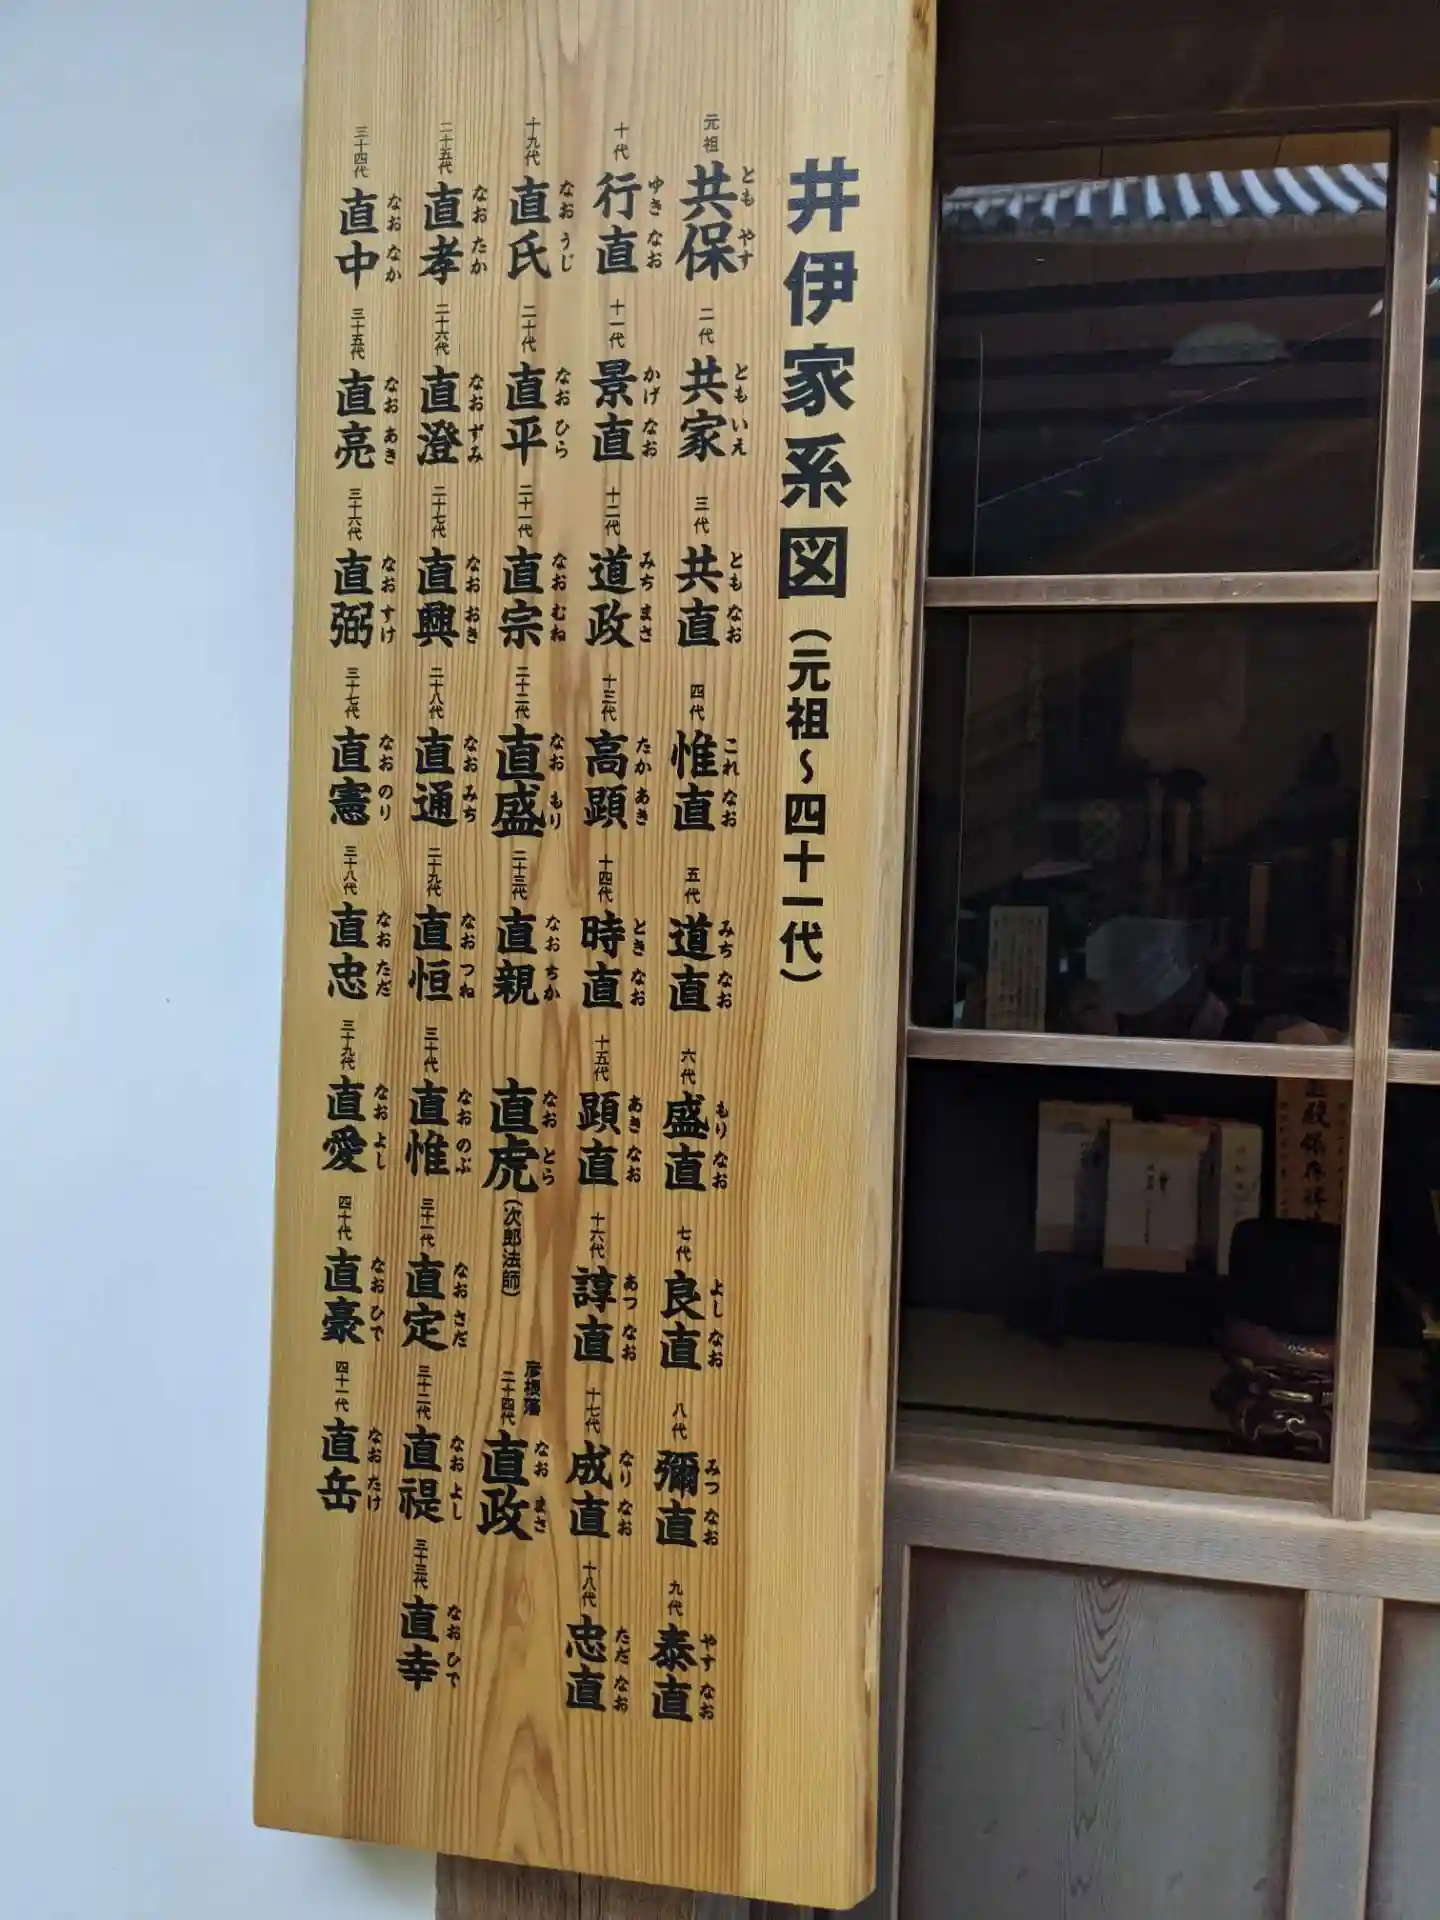 井伊家系図（元祖～四十一代）
元祖 共保 ともやす
二代 共家 ともいえ
三代 共直 ともなお
四代 惟直 これなお
五代 道直 みちなお
六代 盛直 もりなお
七代 良直 よしなお
八代 彌直 みつなお
九代 泰直 やすなお
十代 行直 ゆきなお
十一代 景直 かげなお
十二代 道政 みちまさ
十三代 高顕 たかあき
十四代 時直 ときなお
十五代 顕直 あきなお
十六代 諄直 あつなお
十七代 成直 なりなお
十八代 忠直 ただなお
十九代 直氏 なおうじ
二十代 直平 なおひら
二十一代 直宗 なおむね
二十二代 直盛 なおもり
二十三代 直親 なおちか
直虎 なおとら（次郎法師）
彦根藩 二十四代 直政 なおまさ
二十五代 直孝 なおたか
二十六代 直澄 なおずみ
二十七代 直興 なおおき
二十八代 直通 なおみち
二十九代 直恒 なおつね
三十代 直惟 なおのぶ
三十一代 直定 なおさだ
三十二代 直禔 なおよし
三十三代 直幸 なおひで
三十四代 直中 なおなか
三十五代 直亮 なおあき
三十六代 直弼 なおすけ
三十七代 直憲 なおのり
三十八代 直忠 なおただ
三十九代 直愛 なおよし
四十代 直豪 なおひで
四十一代 直岳 なおたけ